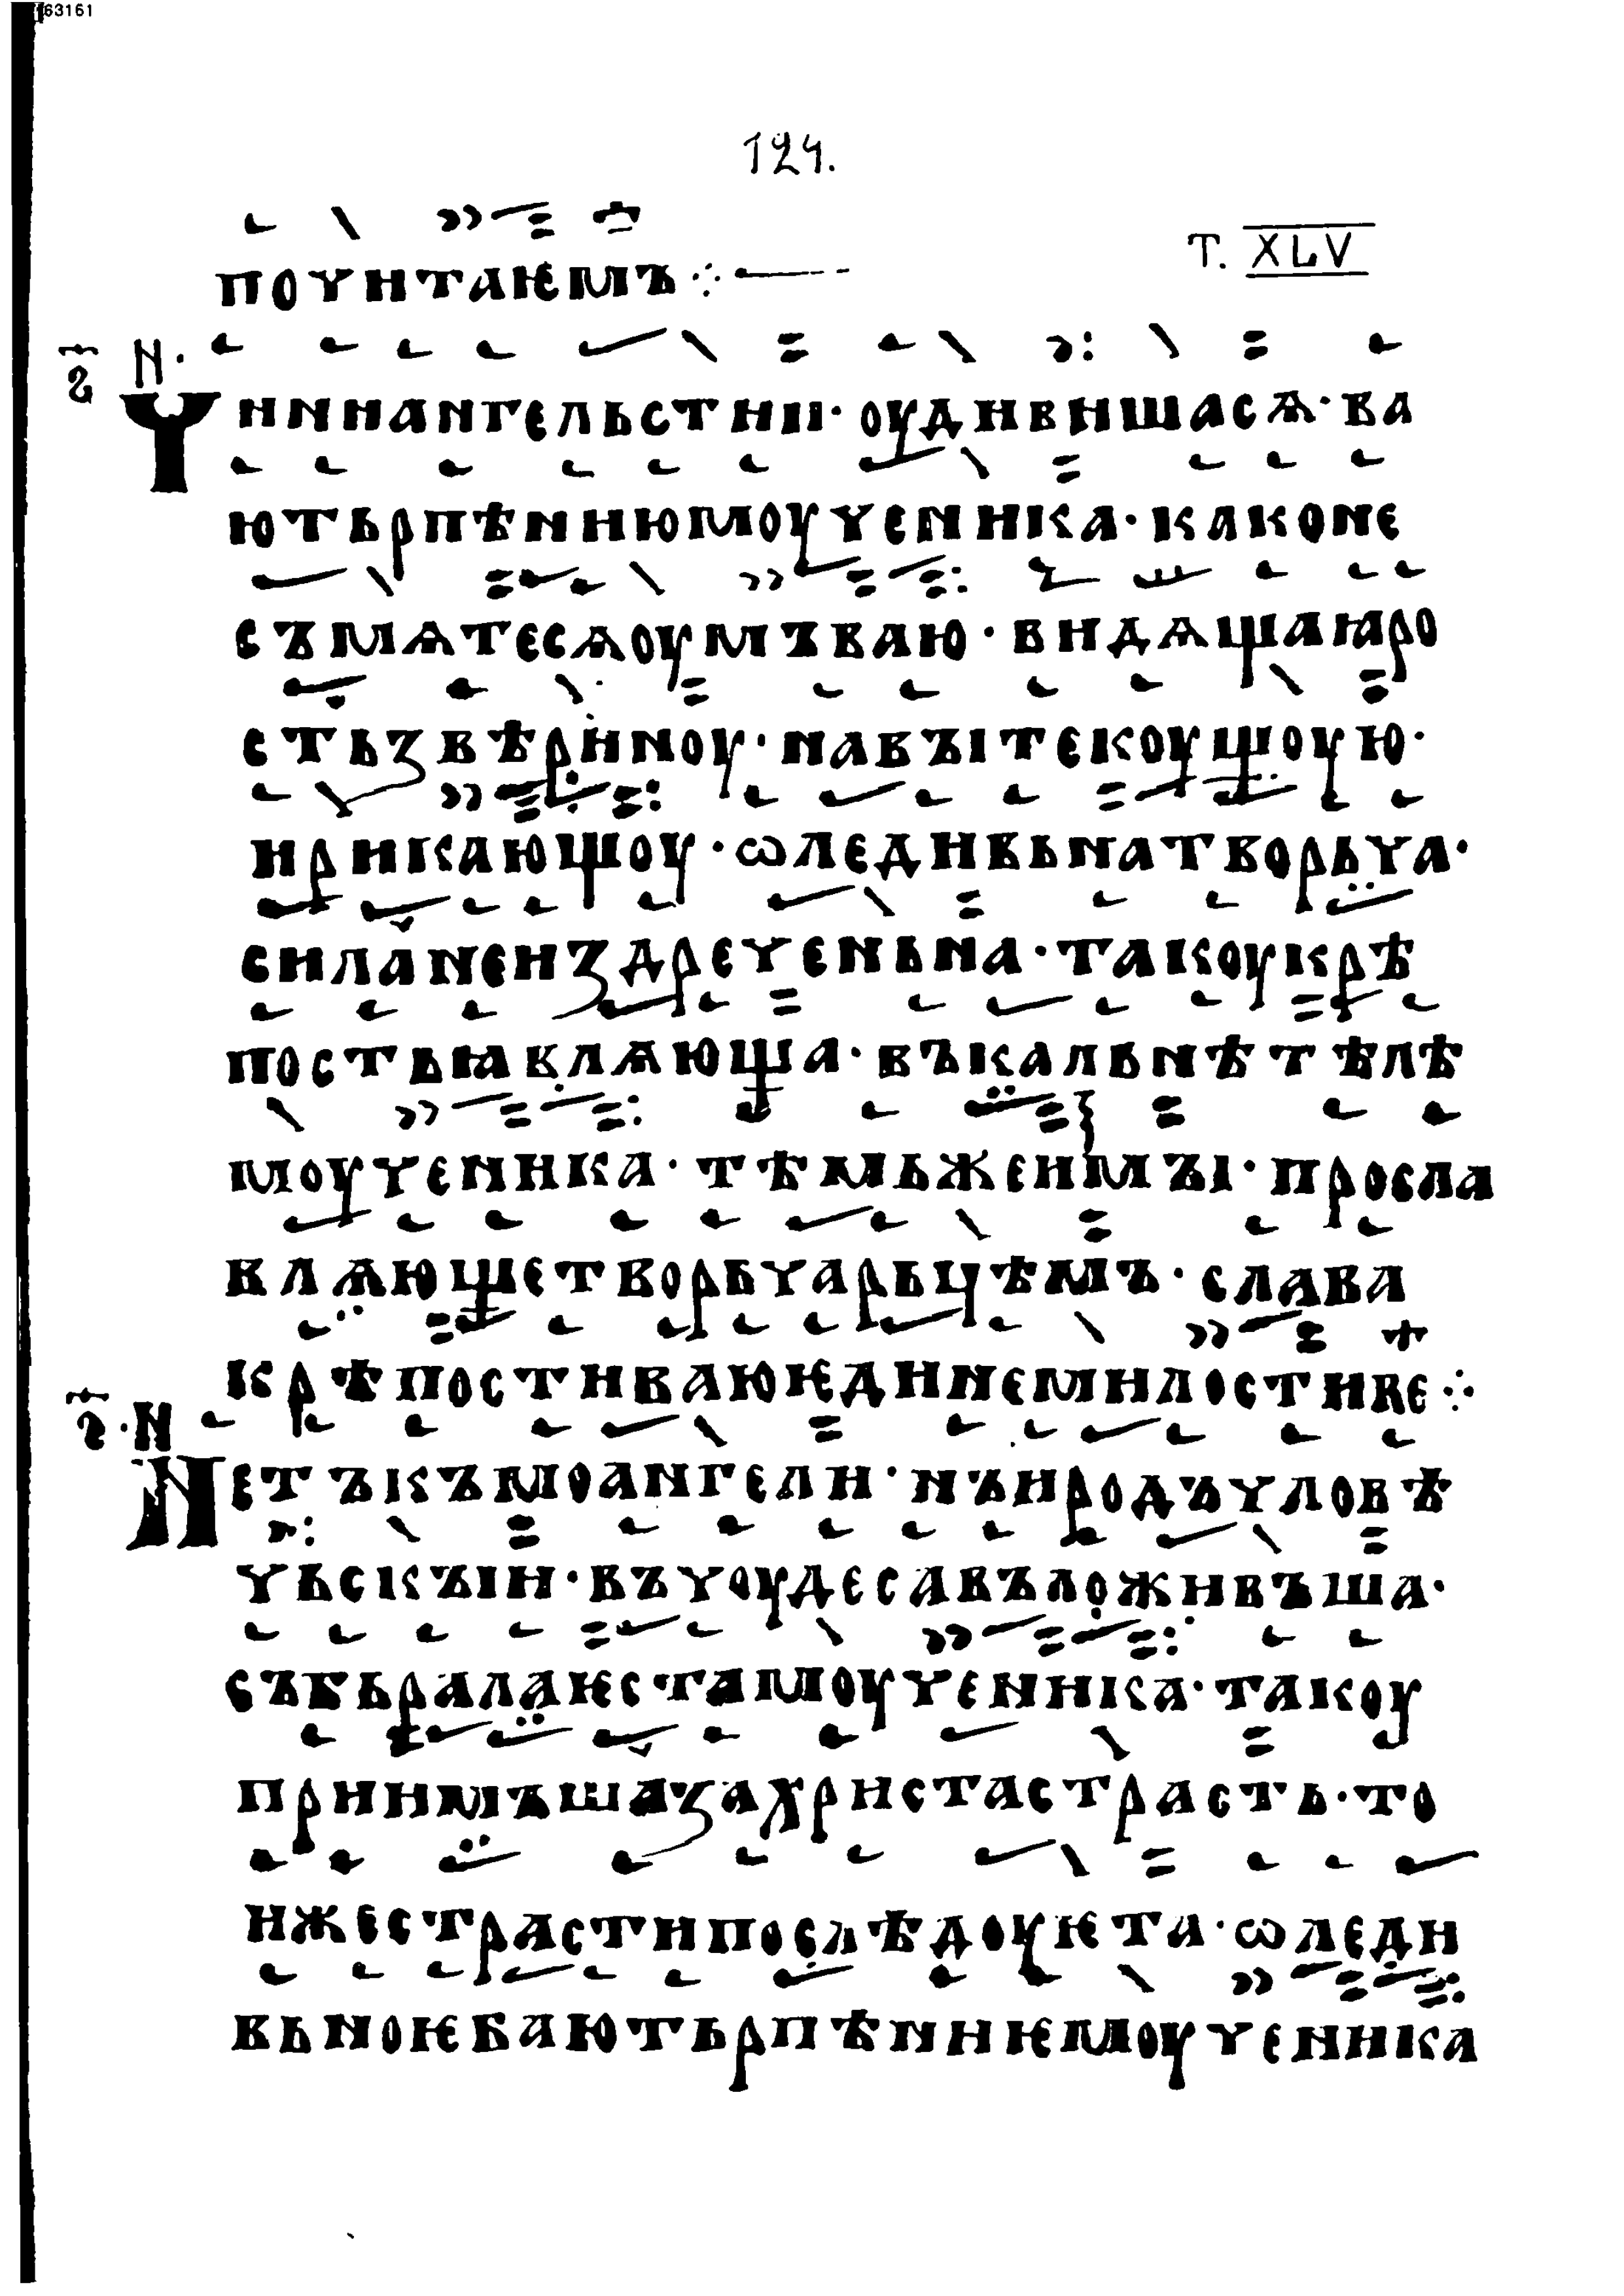 163161
124.
Т. XLV
почитаѥмъ ⁘
г҃ N·
Чини ангельстии· оудивишасѧ· ва
ю тьрпѣнию моученика· како не
съмѧтесѧ оумъ ваю· видѧща ꙗро
сть звѣриноу· на вꙑ текоущоую·
и рикающоу· ѡле дивьна творьча·
сила неиздреченьна· такоу крѣ
постьꙗвлѧюща· въ кальнѣ тѣлѣ
моученика· тѣмьже и мꙑ· просла
влѧюще творьча рьцѣмъ· слава
крѣпости ваю ѥдине милостиве ⁘
г҃ ·N
Не тъкъмо ангели· нъ и родъ чловѣ
чьскꙑи· въ чоудеса въложивъша·
събьрала ѥста моученика· такоу
приимъша за христа страсть· то
иже страсти послѣдоуѥта· ѡле ди
вьноѥ ваю тьрпѣниѥ моученика